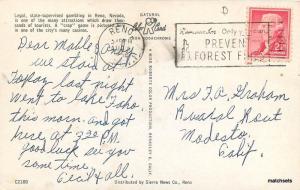 Legal, state-supervised gambling in Reno, Nevada,
is one of the many attractions which draw thousands
of tourists. A "crap" game is pictured in
one of the city's many casinos.
NATURAL
COLOR
D
RENO
Remember Only you can
PREVENT
FOREST FIRES
2¢
Dear Mable & Guy
we staid at
Topaz last night
went to Lake Taho
this morn. and got
here at 9:30 P.M.
good luck. see you
some time.
Cecil & all.
MIKE ROBERTS COLOR PRODUCTION, BERKELEY 2, CALIF.
Mrs F. A. Graham
Hotel
Modesto,
Calif.
C2180
Distributed by Sierra News Co., Reno
matchsets